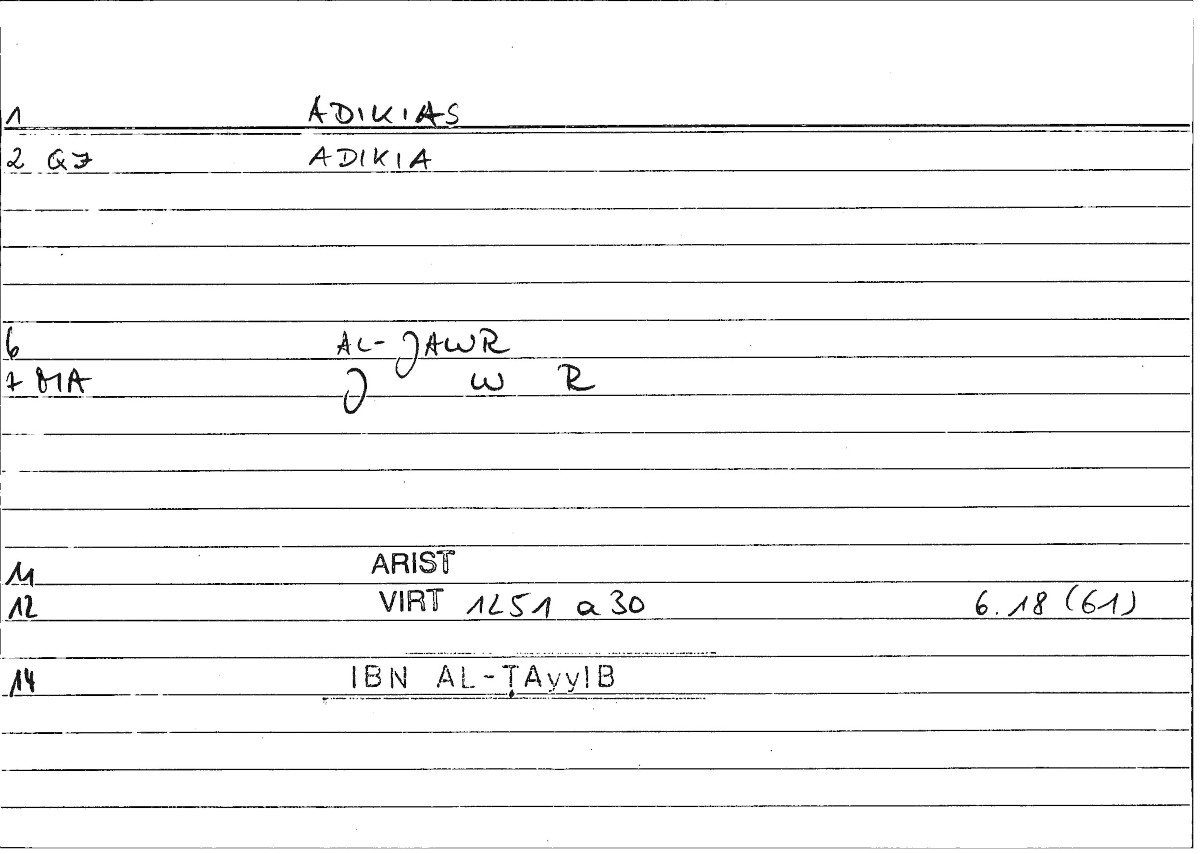 1 ADIKIAS
2 QZ ADIKIA
6 AL-JAWR
7 MA J W R
11 ARIST
12 VIRT 1251 a 30 6.18 (61)
14 IBN AL-ṬAyyIB